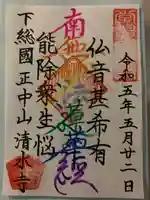 令和五年五月廿二日
仏音甚希有
南無妙法蓮華経
能除衆生悩
下総國 正中山 清水寺